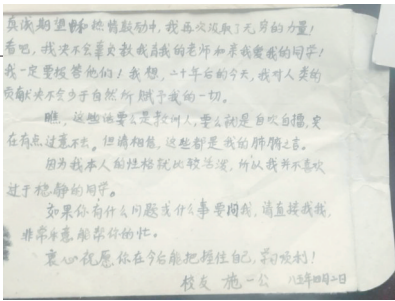 真诚期望和热情鼓励中，我再次汲取了无穷的力量！
看吧，我决不会辜负教我育我的老师和来我爱我的同学！
我一定要报答他们！我想，二十年后的今天，我对人类的
贡献决不会少于自然所赋予我的一切。
瞧，这些话要么是教训人，要么就是自吹自擂，实
在有点过意不去。但请相信，这些都是我的肺腑之言。
因为我本人的性格就比较活泼，所以我并不喜欢
过于稳静的同学。
如果你有什么问题或什么事要问我，请直接找我，
非常乐意能帮你的忙。
衷心祝愿你在今后能把握住自己，学习顺利！
校友 施一公 八五年四月二日